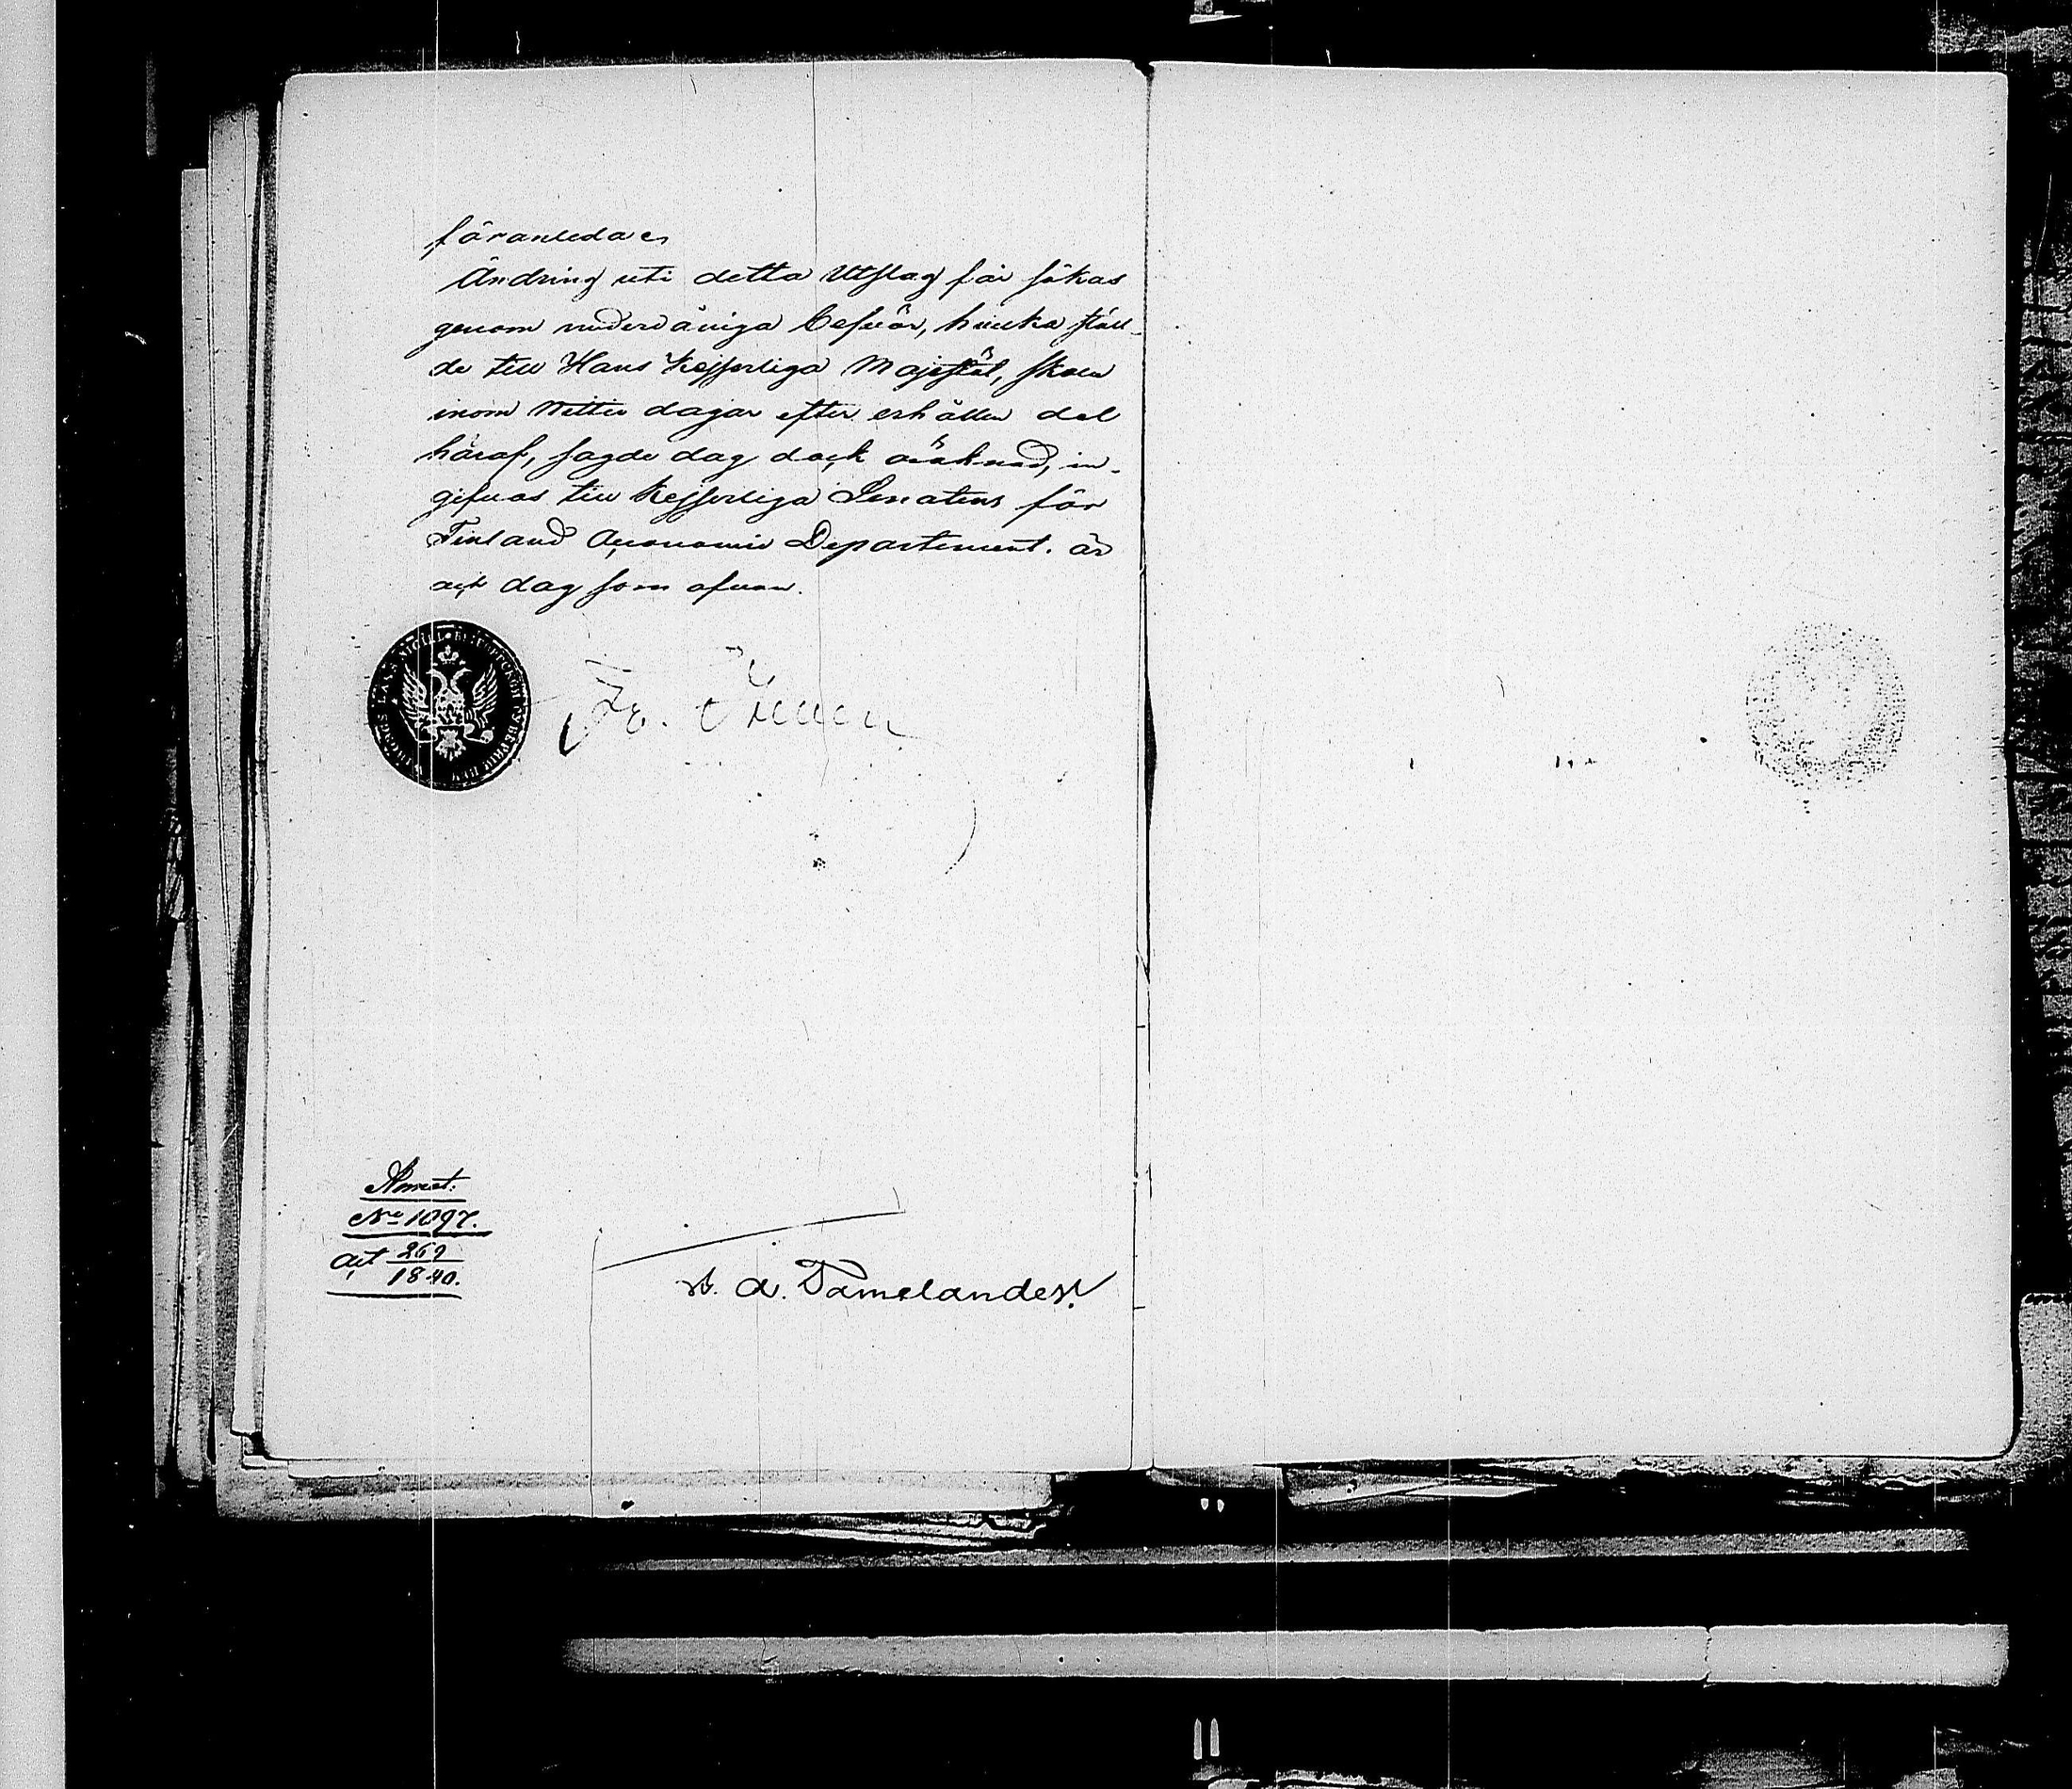 föranledaes
Ändring uti detta Utslag får sökas
genom underdåniga besvär, hvilka stäl-
de till Hans Kejserliga Majestät, skola
inom Nettio dagar efter erhållen del
häraf, sagde dag dock oräknad, in-
gifvas till Kejserliga Senatens för
Finland Oeconomie Departement. år
och dag som ofvan.
Fr.
No 1097.
Act 269
1840.
A. Tamelander.